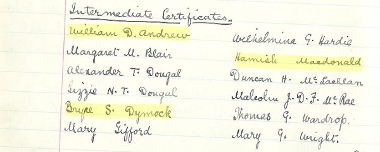 Intermediate Certificates.
William D. Andrew
Margaret M. Blair
Alexander T. Dougal
Lizzie N. T. Dougal
Bryce S. Dymock
Mary Gifford
Wilhelmina G. Hardie
Hamish Macdonald
Duncan H. McLachlan
Malcolm J. D. F. McRae
Thomas G. Wardrop.
Mary G. Wright.